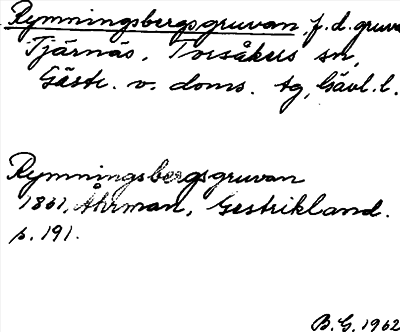 Rymningsbergsgruvan, f.d. gruva
Tjärnäs, Torsåkers sn,
Gästr. v. doms. tg, Gävl. l.
Rymningsbergsgruvan
1861, Åhrman, Gestrikland.
s. 191.
B.G. 1962